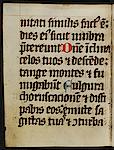 nitati similis factꝰ eſt
dies eī ſicut umbra
p̄tereunt Dñe īclina
celos tuos ⁊ deſcēde
tange montes ⁊ fu
migabūt Fulgura
choruſcationē ⁊ diſſi
pabis eos emitte ſa
gittas tuas ⁊ ↄturba